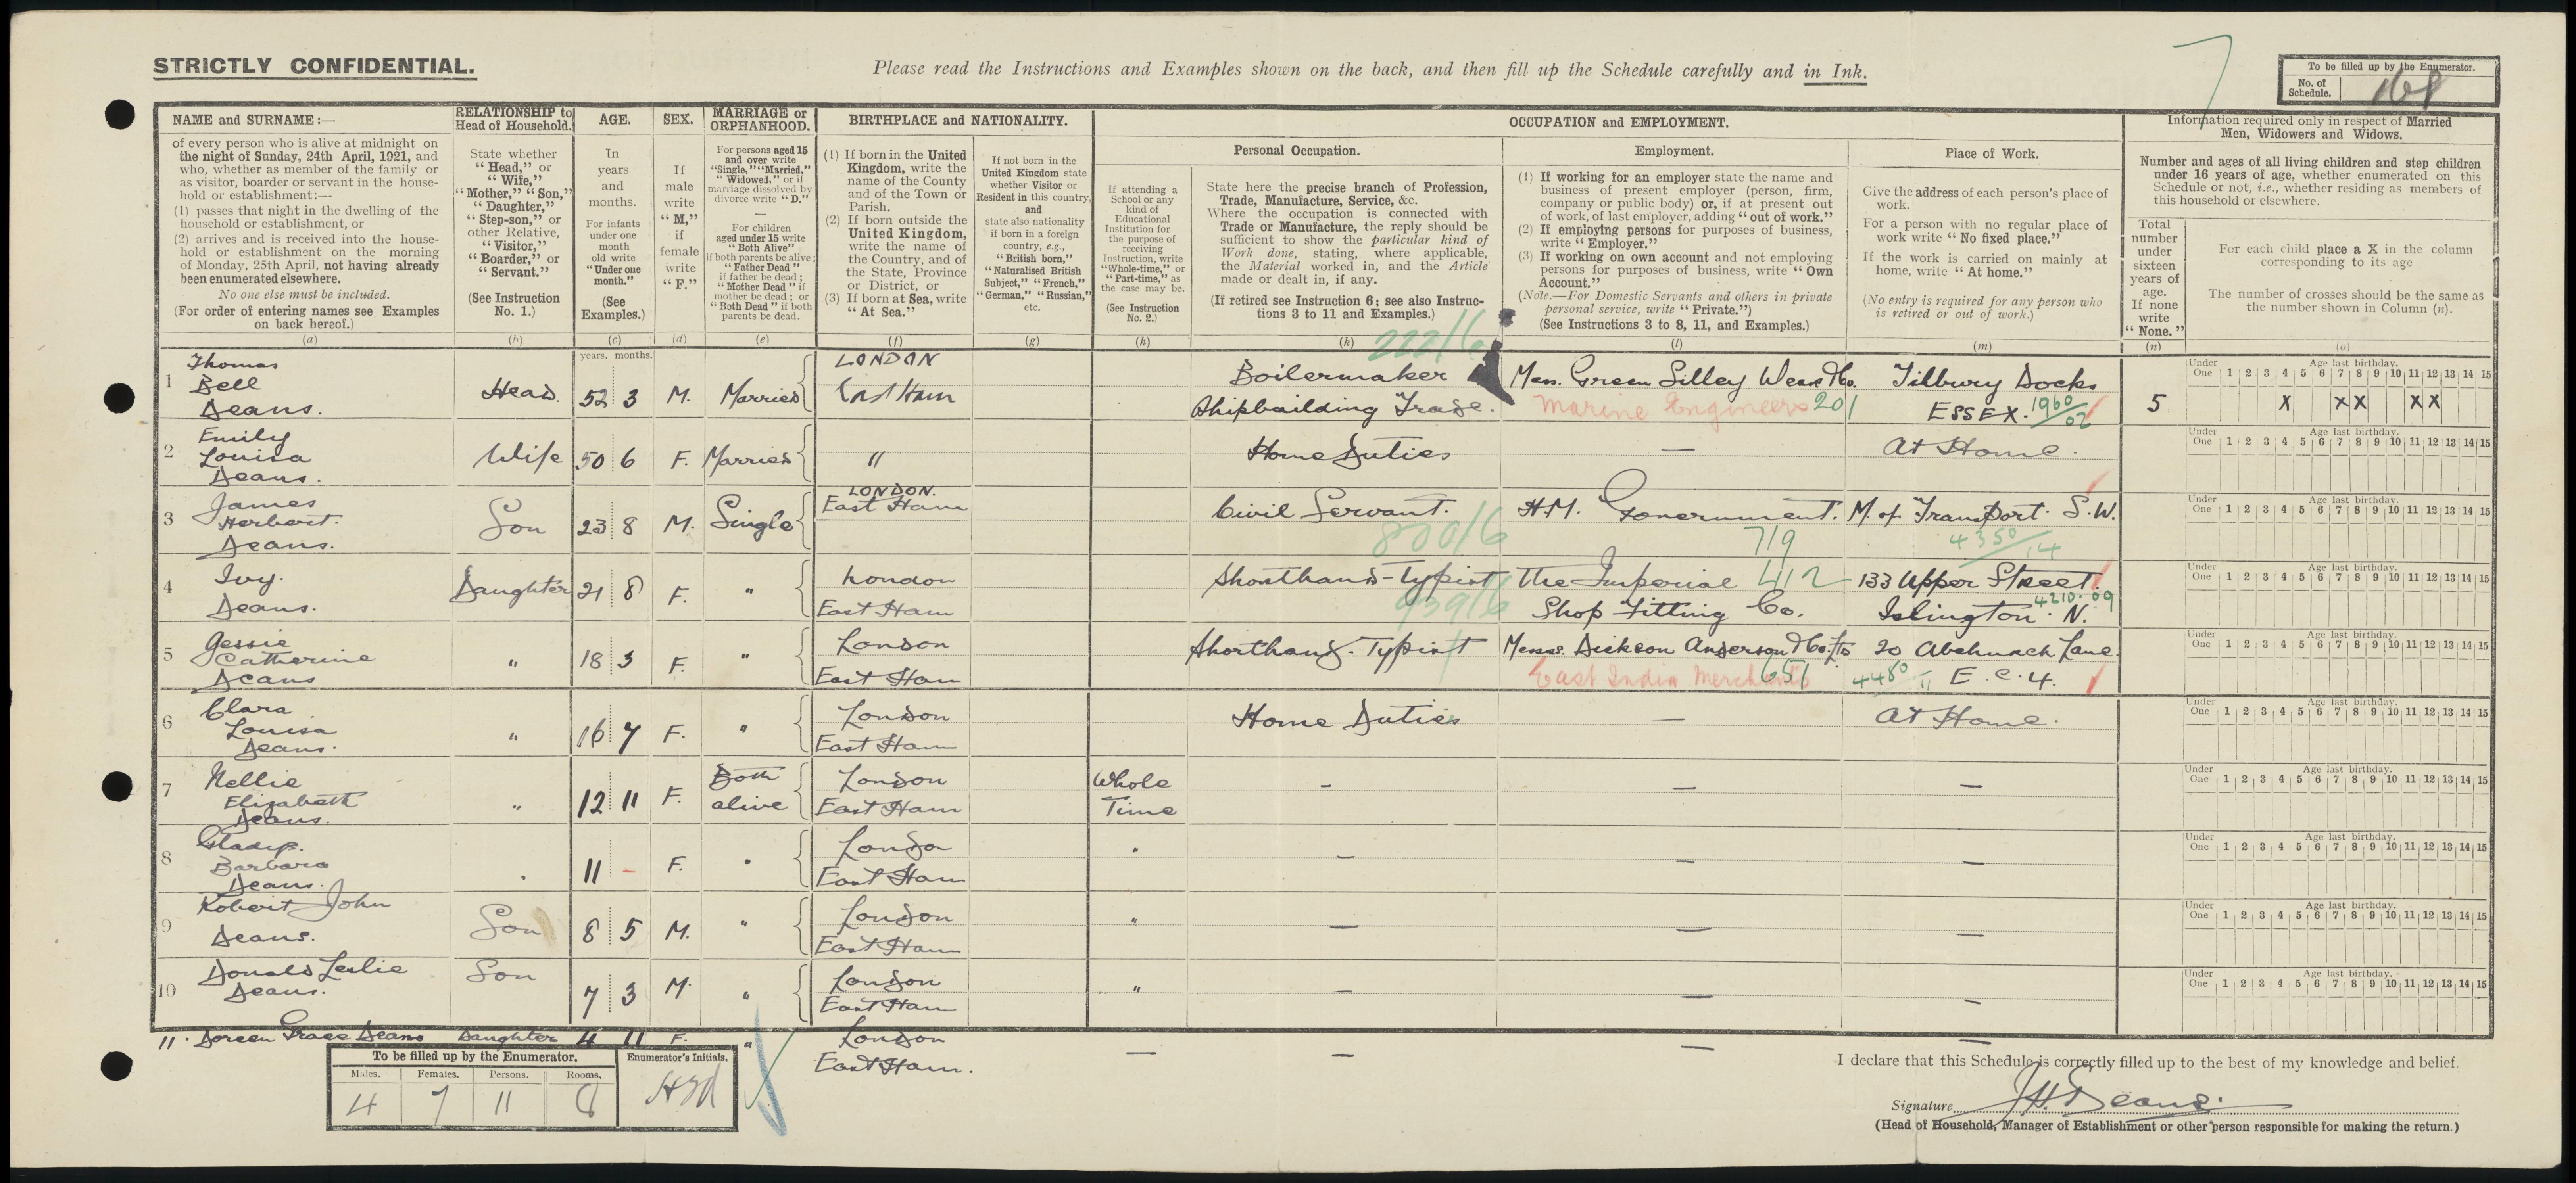 STRICTLY CONFIDENTIAL.
Please read the Instructions and Examples shown on the back, and then fill up the Schedule carefully and in Ink.
To be filled up by the Enumerator.
No. of Schedule. 168
7
NAME and SURNAME :—
of every person who is alive at midnight on
the night of Sunday, 24th April, 1921, and
who, whether as member of the family or
as visitor, boarder or servant in the house-
hold or establishment :—
(1) passes that night in the dwelling of the
household or establishment, or
(2) arrives and is received into the house-
hold or establishment on the morning
of Monday, 25th April, not having already
been enumerated elsewhere.
No one else must be included.
(For order of entering names see Examples
on back hereof.)
(a)
RELATIONSHIP to
Head of Household.
State whether
"Head," or
"Wife,"
"Mother," "Son,"
"Daughter,"
"Step-son," or
other Relative,
"Visitor,"
"Boarder," or
"Servant."
(See Instruction
No. 1.)
(b)
AGE.
In
years
and
months.
For infants
under one
month
old write
"Under one
month."
(See
Examples.)
(c)
SEX.
If
male
write
"M,"
if
female
write
"F."
(d)
MARRIAGE or
ORPHANHOOD.
For persons aged 15
and over write
"Single," "Married,"
"Widowed," or if
marriage dissolved by
divorce write "D."
—
For children
aged under 15 write
"Both Alive"
if both parents be alive;
"Father Dead"
if father be dead;
"Mother Dead" if
mother be dead; or
"Both Dead" if both
parents be dead.
(e)
BIRTHPLACE and NATIONALITY.
(1) If born in the United
Kingdom, write the
name of the County
and of the Town or
Parish.
(2) If born outside the
United Kingdom,
write the name of
the Country, and of
the State, Province
or District, or
(3) If born at Sea, write
"At Sea."
(f)
If not born in the
United Kingdom state
whether Visitor or
Resident in this country,
and
state also nationality
if born in a foreign
country, e.g.,
"British born,"
"Naturalised British
Subject," "French,"
"German," "Russian,"
etc.
(g)
OCCUPATION and EMPLOYMENT.
If attending a
School or any
kind of
Educational
Institution for
the purpose of
receiving
Instruction, write
"Whole-time," or
"Part-time," as
the case may be.
(See Instruction
No. 2.)
(h)
Personal Occupation.
State here the precise branch of Profession,
Trade, Manufacture, Service, &c.
Where the occupation is connected with
Trade or Manufacture, the reply should be
sufficient to show the particular kind of
Work done, stating, where applicable,
the Material worked in, and the Article
made or dealt in, if any.
(If retired see Instruction 6; see also Instruc-
tions 3 to 11 and Examples.)
(k)
Employment.
(1) If working for an employer state the name and
business of present employer (person, firm,
company or public body) or, if at present out
of work, of last employer, adding "out of work."
(2) If employing persons for purposes of business,
write "Employer."
(3) If working on own account and not employing
persons for purposes of business, write "Own
Account."
(Note.—For Domestic Servants and others in private
personal service, write "Private.")
(See Instructions 3 to 8, 11, and Examples.)
(l)
Place of Work.
Give the address of each person's place of
work.
For a person with no regular place of
work write "No fixed place."
If the work is carried on mainly at
home, write "At home."
(No entry is required for any person who
is retired or out of work.)
(m)
Information required only in respect of Married
Men, Widowers and Widows.
Number and ages of all living children and step children
under 16 years of age, whether enumerated on this
Schedule or not, i.e., whether residing as members of
this household or elsewhere.
Total
number
under
sixteen
years of
age.
If none
write
"None."
(n)
For each child place a X in the column
corresponding to its age
The number of crosses should be the same as
the number shown in Column (n).
(o)
years. months.
1 Thomas Bell Deans. Head. 52 3 M. Married LONDON East Ham Boilermaker Shipbuilding Trade. 222/6 Mess. Green Silley Weir & Co. Marine Engineers 201 Tilbury Docks ESSEX. 1960/02 5 X X X X X
Under One 1 2 3 4 5 6 7 8 9 10 11 12 13 14 15 Age last birthday.
2 Emily Louisa Deans. Wife 50 6 F. Married " Home Duties — At Home.
Under One 1 2 3 4 5 6 7 8 9 10 11 12 13 14 15 Age last birthday.
3 James Herbert. Deans. Son 23 8 M. Single LONDON. East Ham Civil Servant. 800/6 H.M. Government. 719 M. of Transport. S.W. 4350/14
Under One 1 2 3 4 5 6 7 8 9 10 11 12 13 14 15 Age last birthday.
4 Ivy. Deans. Daughter 21 8 F. " London East Ham Shorthand-Typist 939/6 The Imperial Shop Fitting Co. 412 133 Upper Street. Islington. N. 4210.09
Under One 1 2 3 4 5 6 7 8 9 10 11 12 13 14 15 Age last birthday.
5 Jessie Catherine Deans " 18 3 F. " London East Ham Shorthand-Typist Messrs. Dickson Anderson & Co. Ltd East India Merchants 651 20 Abchurch Lane. E.C.4. 4480/11
Under One 1 2 3 4 5 6 7 8 9 10 11 12 13 14 15 Age last birthday.
6 Clara Louisa Deans. " 16 7 F. " London East Ham Home Duties — At Home.
Under One 1 2 3 4 5 6 7 8 9 10 11 12 13 14 15 Age last birthday.
7 Nellie Elizabeth Deans. " 12 11 F. Both alive London East Ham Whole Time — — —
Under One 1 2 3 4 5 6 7 8 9 10 11 12 13 14 15 Age last birthday.
8 Gladys. Barbara Deans. " 11 - F. " Londo East Ham " — — —
Under One 1 2 3 4 5 6 7 8 9 10 11 12 13 14 15 Age last birthday.
9 Robert John Deans. Son 8 5 M. " London East Ham " — — —
Under One 1 2 3 4 5 6 7 8 9 10 11 12 13 14 15 Age last birthday.
10 Donald Leslie Deans. Son 7 3 M. " London East Ham " — — —
Under One 1 2 3 4 5 6 7 8 9 10 11 12 13 14 15 Age last birthday.
11. Doreen Grace Deans Daughter 4 11 F. " London East Ham. — — — —
To be filled up by the Enumerator.
Males. Females. Persons. Rooms.
4 7 11 8
Enumerator's Initials.
I declare that this Schedule is correctly filled up to the best of my knowledge and belief.
Signature J.H. Deans.
(Head of Household, Manager of Establishment or other person responsible for making the return.)